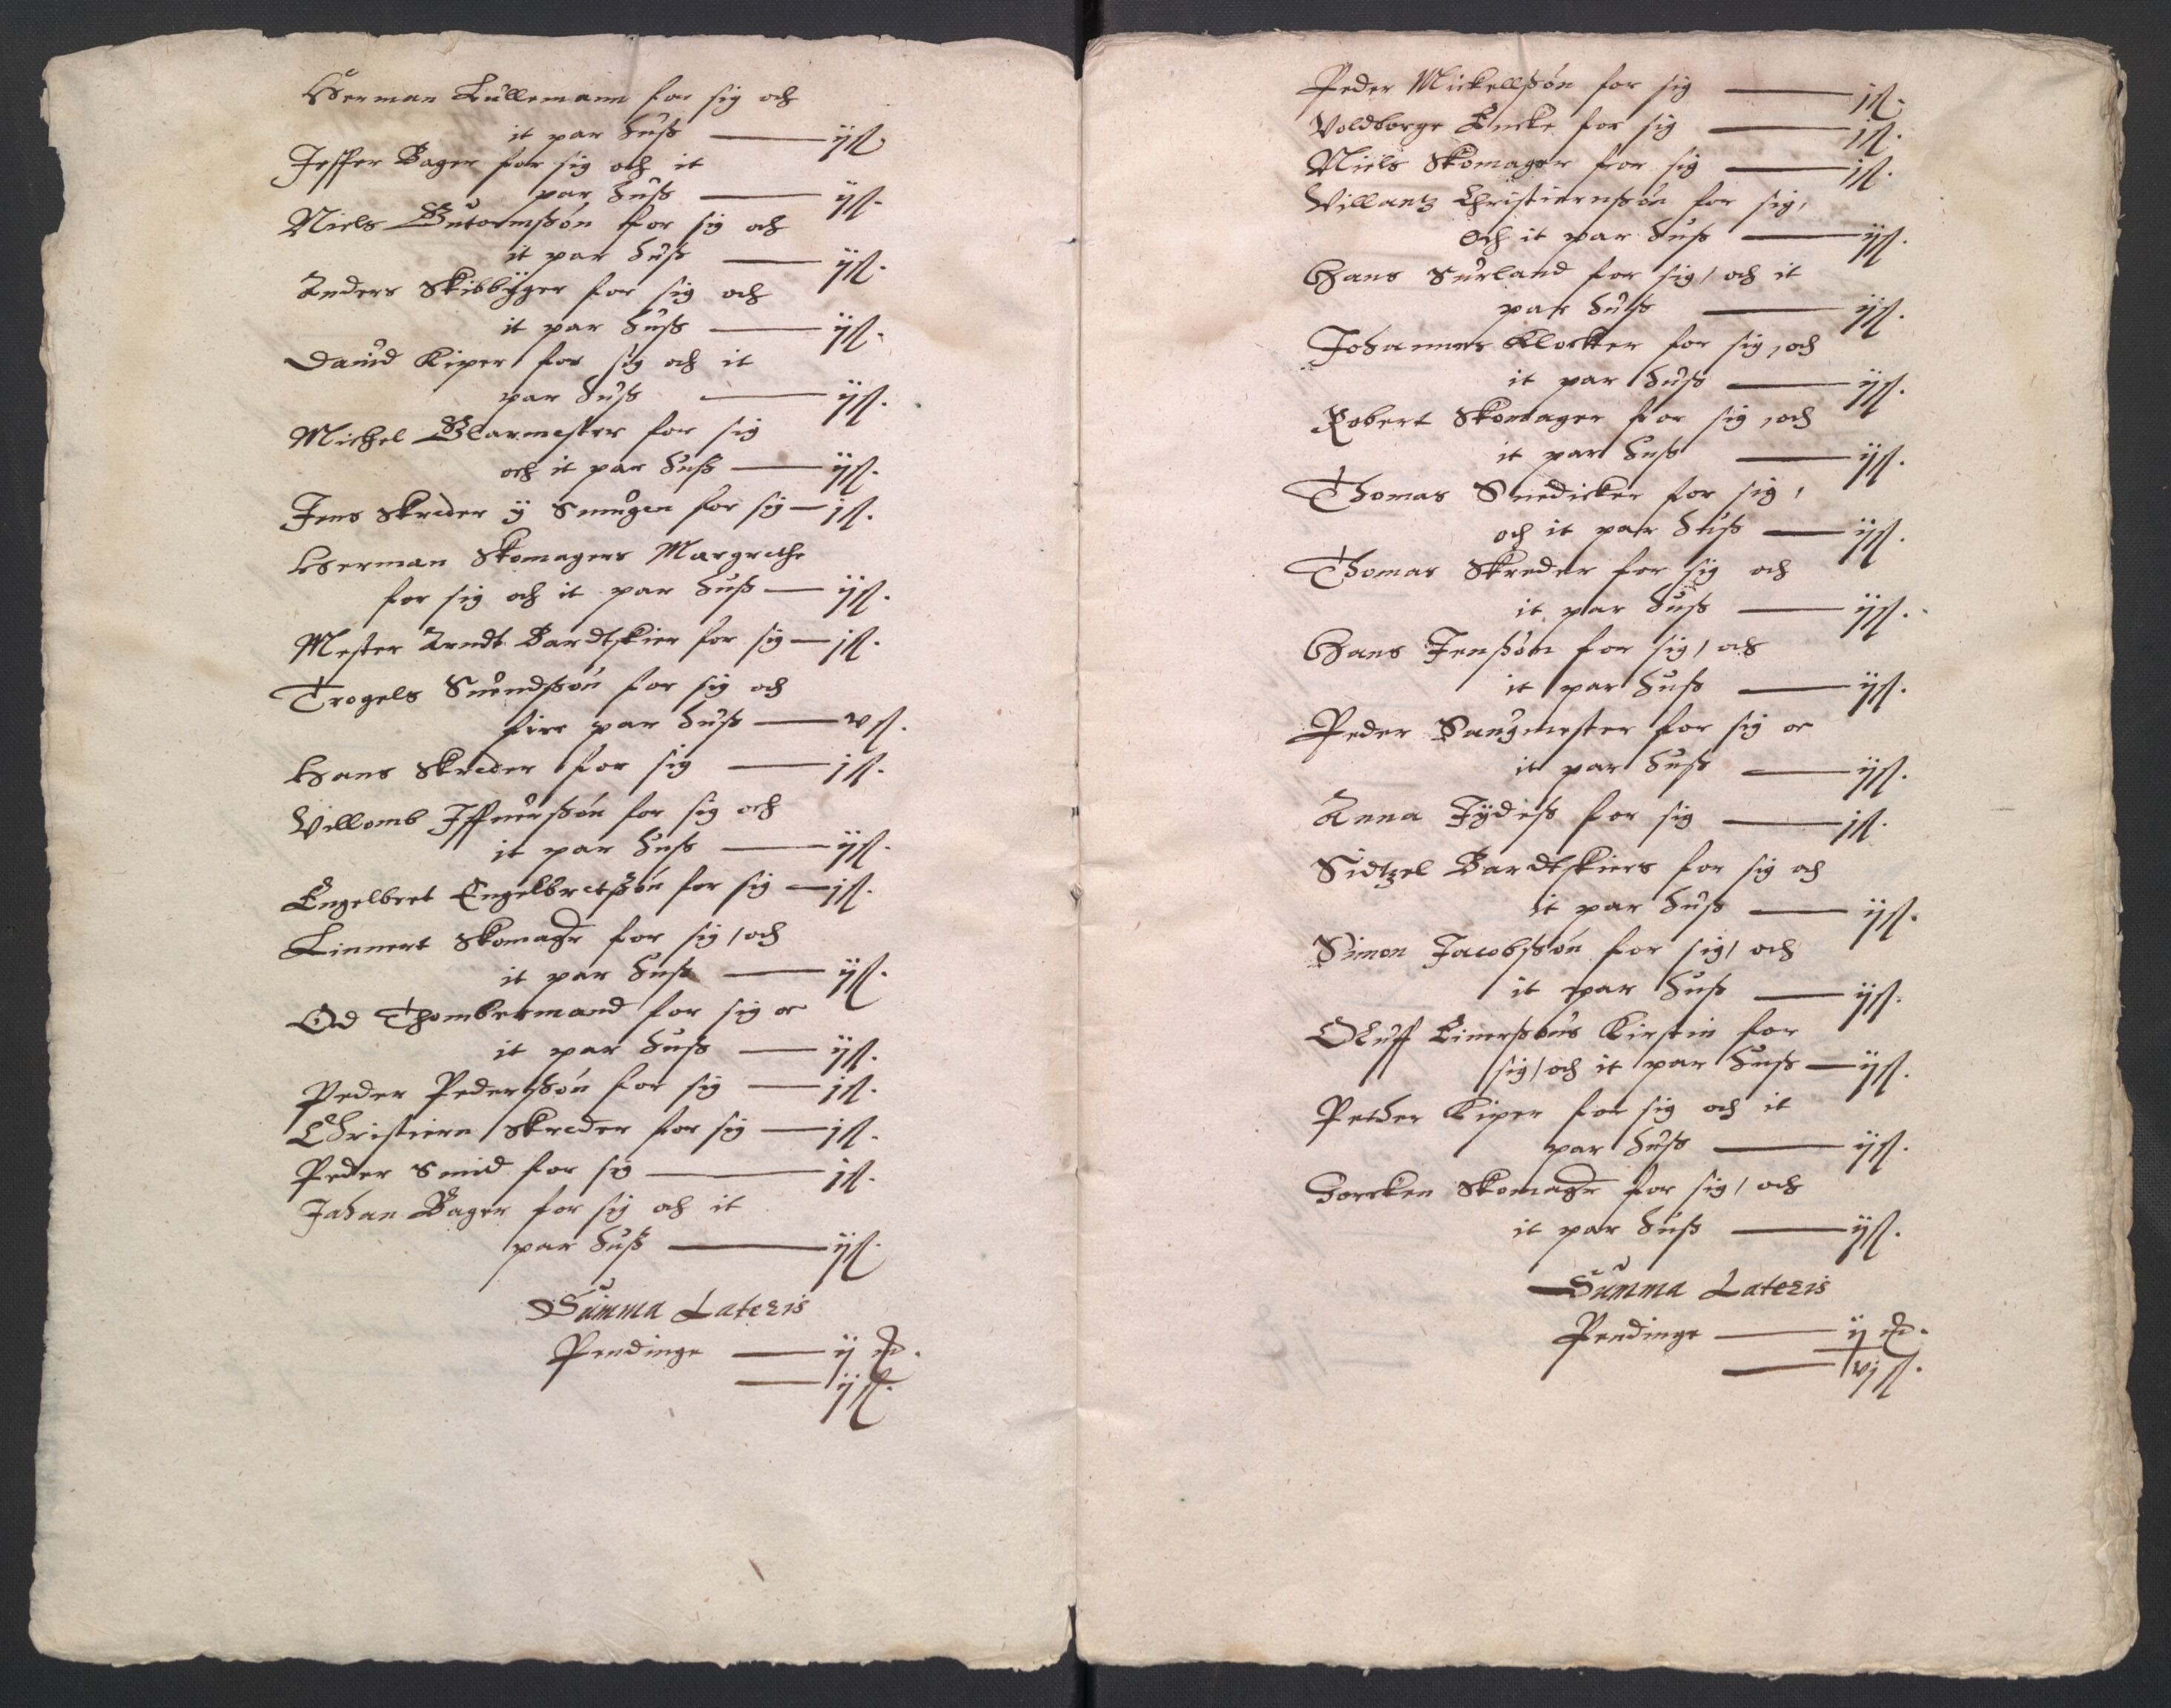 Herman Kullemann for sig och
it par huß — ij ß
Jesper Bager for sig och it
par huß — ij ß.
Niels Gutormßøn for sig och
it par huß — ij ß.
Anders Skibbÿger for sig och
it par huß — ij ß.
Dauid Kiper for sig och it
par huß — ij ß.
Michel Glarmester for sig
och it par huß — ij ß.
Jens Skreder ÿ Smugen for sig — j ß.
Herman Skomagers Margrethe
for sig och it par huß — ij ß.
Mester Arndt Bardtskier for sig — j ß.
Trogels Suendßøn for sig och
fire par huß — v ß.
Hans Skreder for sig — j ß.
Villomb Iffuerßøn for sig och
it par huß — ij ß.
Engelbret Engelbretßøn for sig — j ß.
Linnert Skomager for sig / och
it par huß — ij ß.
Od Thømbermand for sig oc
it par huß — ij ß.
Peder Pederßøn for sig — j ß.
Christiern Skreder for sig — j ß.
Peder Smid for sig — j ß.
Johan Bager for sig och it
par huß — ij ß.
Summa Lateris
Pendinge — ij d.
— ij ß.
Peder Mickellßøn for sig — j ß.
Voldborge Encke for sig — j ß.
Niels Skomager for sig — j ß.
Villantz Christiernßøn for sig,
och it par huß — ij ß.
Hans Surland for sig / och it
par huß — ij ß.
Johannes Klocker for sig, och
it par huß — ij ß.
Robert Skomager for sig, och
it par huß — ij ß.
Thomas Snedicker for sig,
och it par huß — ij ß.
Thomas Skreder for sig och
it par huß — ij ß.
Hans Jenßøn for sig / och
it par huß — ij ß.
Peder Sangmester for sig oc
it par huß — ij ß.
Anna Tÿdeß for sig — j ß.
Sidtzel Bardtskiers for sig och
it par huß — ij ß.
Simon Jacobßøn for sig / och
it par huß — ij ß.
Oluff Einerßøns Kirstin for
sig / och it par huß — ij ß.
Petder Kiper for sig och it
par huß — ij ß.
Skomager for sig / och
it par huß — ij ß.
Summa Lateris
Pendinge — ij d.
— vj ß.